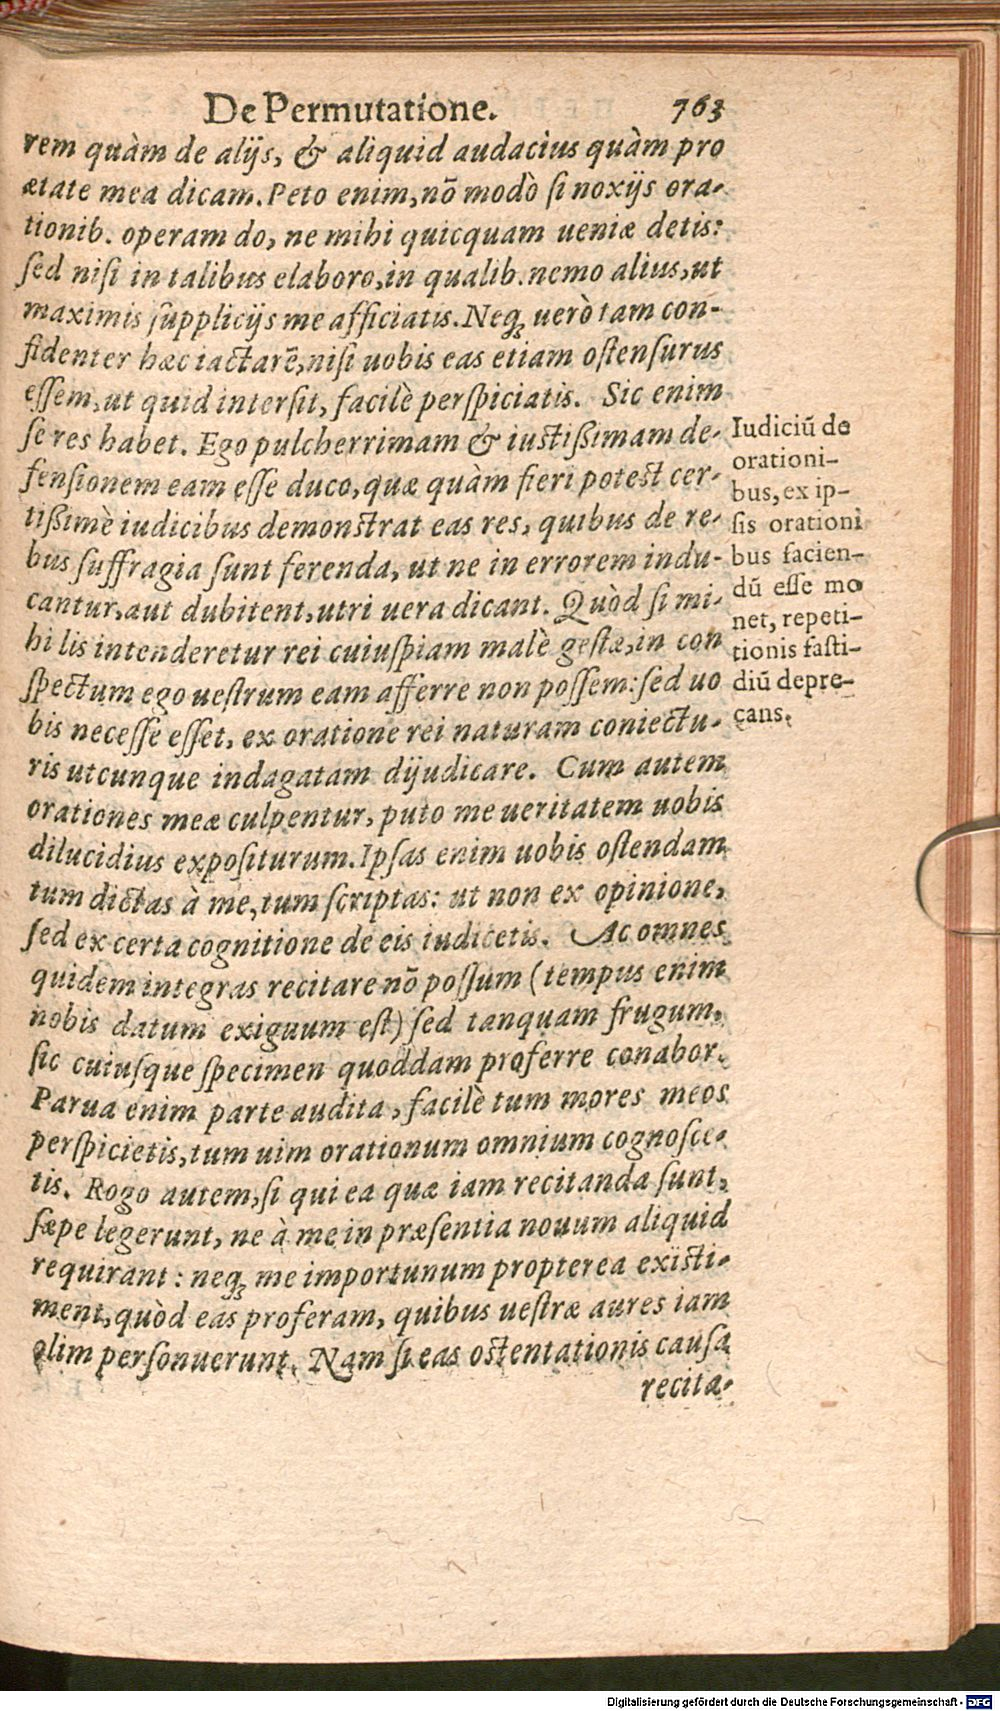 De Permutatione. 763
rem quàm de alijs, & aliquid audacius quàm pro
ætate mea dicam. Peto enim, nō modò ſi noxijs ora-
tionib. operam do, ne mihi quicquam ueniæ detis:
ſed niſi in talibus elaboro, in qualib. nemo alius, ut
maximis ſupplicijs me afficiatis. Neqꝫ uerò tam con-
fidenter hæc iactarē, niſi uobis eas etiam oſtenſurus
eſſem, ut quid interſit, facilè perſpiciatis. Sic enim
ſe res habet. Ego pulcherrimam & iuſtißimam de-
fenſionem eam eſſe duco, quæ quàm fieri poteſt cer-
tißimè iudicibus demonſtrat eas res, quibus de re-
bus ſuffragia ſunt ferenda, ut ne in errorem indu-
cantur, aut dubitent, utri uera dicant. Quòd ſi mi-
hi lis intenderetur rei cuiuſpiam malè geſtæ, in con
ſpectum ego ueſtrum eam afferre non poſſem: ſed uo
bis neceſſe eſſet, ex oratione rei naturam coniectu-
ris utcunque indagatam dijudicare. Cum autem
orationes meæ culpentur, puto me ueritatem uobis
dilucidius expoſiturum. Ipſas enim uobis oſtendam
tum dictas à me, tum ſcriptas: ut non ex opinione,
ſed ex certa cognitione de eis iudicetis. Ac omnes
quidem integras recitare nō poſſum (tempus enim
nobis datum exiguum eſt) ſed tanquam frugum,
ſic cuiuſque ſpecimen quoddam proferre conabor.
Parua enim parte audita, facilè tum mores meos
perſpicietis, tum uim orationum omnium cognoſce-
tis. Rogo autem, ſi qui ea quæ iam recitanda ſunt,
ſæpe legerunt, ne à me in præſentia nouum aliquid
requirant: neqꝫ me importunum propterea exiſti-
ment, quòd eas proferam, quibus ueſtræ aures iam
olim perſonuerunt. Nam ſi eas oſtentationis cauſa
recita-
Iudiciū de
orationi-
bus, ex ip-
ſis orationi
bus facien-
dū eſſe mo
net, repeti-
tionis faſti-
diū depre-
cans.
Digitalisierung gefördert durch die Deutsche Forschungsgemeinschaft - DFG